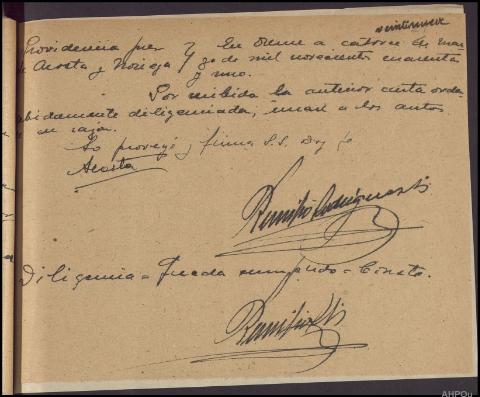 veintinueve
Providencia juez } En Orense a catorce de mar-
Acosta y Noriega } zo de mil novecientos cuarenta
y uno.
Por recibida la anterior carta orden
debidamente diligenciada, únase a los autos
de su razón.
Lo proveyó y firma S.S. Doy fe
Acosta
Remigio Rodríguez
Diligencia = Queda cumplido = Consta.
AHPOu